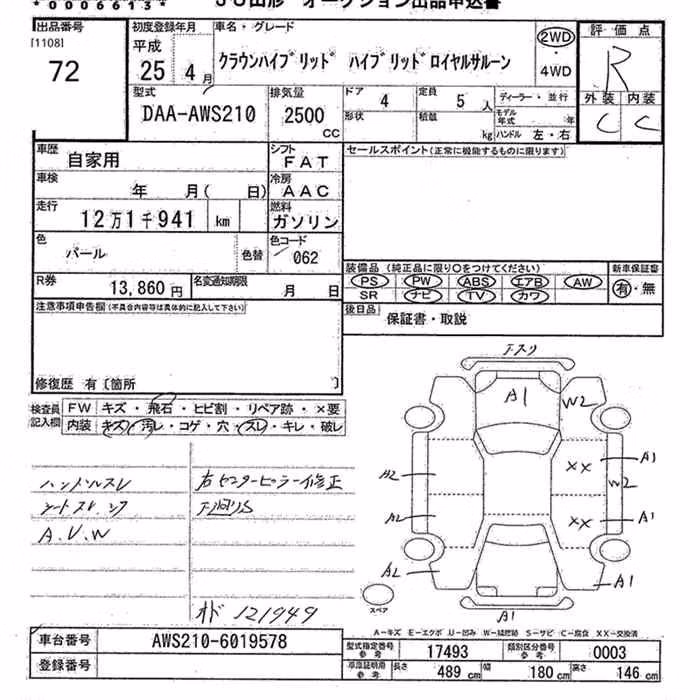 *0006613*
JU山形 オークション出品申込書
出品番号
[1108]
72
初度登録年月
平成
25年 4月
車名・グレード
クラウンハイブリッド ハイブリッドロイヤルサルーン
2WD
・
4WD
評価点
R
外装 内装
C C
型式
DAA-AWS210
排気量
2500
CC
ドア 4
定員 5人
ディーラー・並行
形状
積載 kg
モデル年式 年
ハンドル 左・右
車歴 自家用
シフト FAT
セールスポイント(正常に機能するものに限ります)
車検 年 月( 日)
冷房 AAC
走行 12万1千941 km
燃料 ガソリン
色 パール 色替
色コード 062
R券 13,860円
名変通知期限 月 日
装備品(純正品に限り○をつけてください)
PS PW ABS エアB AW
SR ナビ TV カワ
新車保証書
有・無
後日品 保証書・取説
注意事項申告欄(不具合内容等は具体的に記入して下さい)
修復歴 有〔箇所 〕
検査員記入欄
FW キズ・飛石・ヒビ割・リペア跡・×要
内装 キズ・汚レ・コゲ・穴・スレ・キレ・破レ
ハンドルスレ
シートスレ
A.U.W
右センターピラー修正
下回りS
オド 121949
下スリ
A1
W2
A2
XX
A1
W2
A2
XX
A1
A2
A1
A1
スペア
A-キズ E-エクボ U-凹み W-補修跡 S-サビ C-腐食 XX-交換済
車台番号 AWS210-6019578
登録番号
型式指定番号参考 17493
類別区分番号参考 0003
車庫証明用参考 長さ 489cm 幅 180cm 高さ 146cm